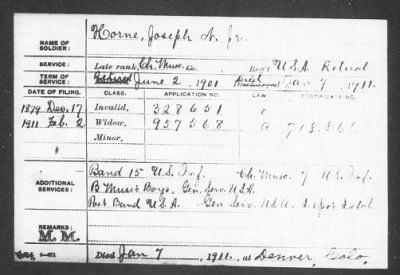 NAME OF SOLDIER: Horne, Joseph N. Jr.
SERVICE: Late rank, Ch. Musc. Co. Reg't U.S.A. Retired
TERM OF SERVICE: Retired June 2, 1901. Died Jan 7, 1911.
DATE OF FILING. CLASS. APPLICATION NO. LAW. CERTIFICATE NO.
1879 Dec. 17 Invalid, 328651
1911 Feb. 2 Widow, 957568
Minor,
ADDITIONAL SERVICES: Band 15 U.S. Inf. Ch. Musc. 7 U.S. Inf.
B. Music Boys, Gen. Serv. U.S.A.
Post Band U.S.A. Gen. Serv. U.S.A.
REMARKS: M. M.
Died Jan 7, 1911, at Denver, Colo.